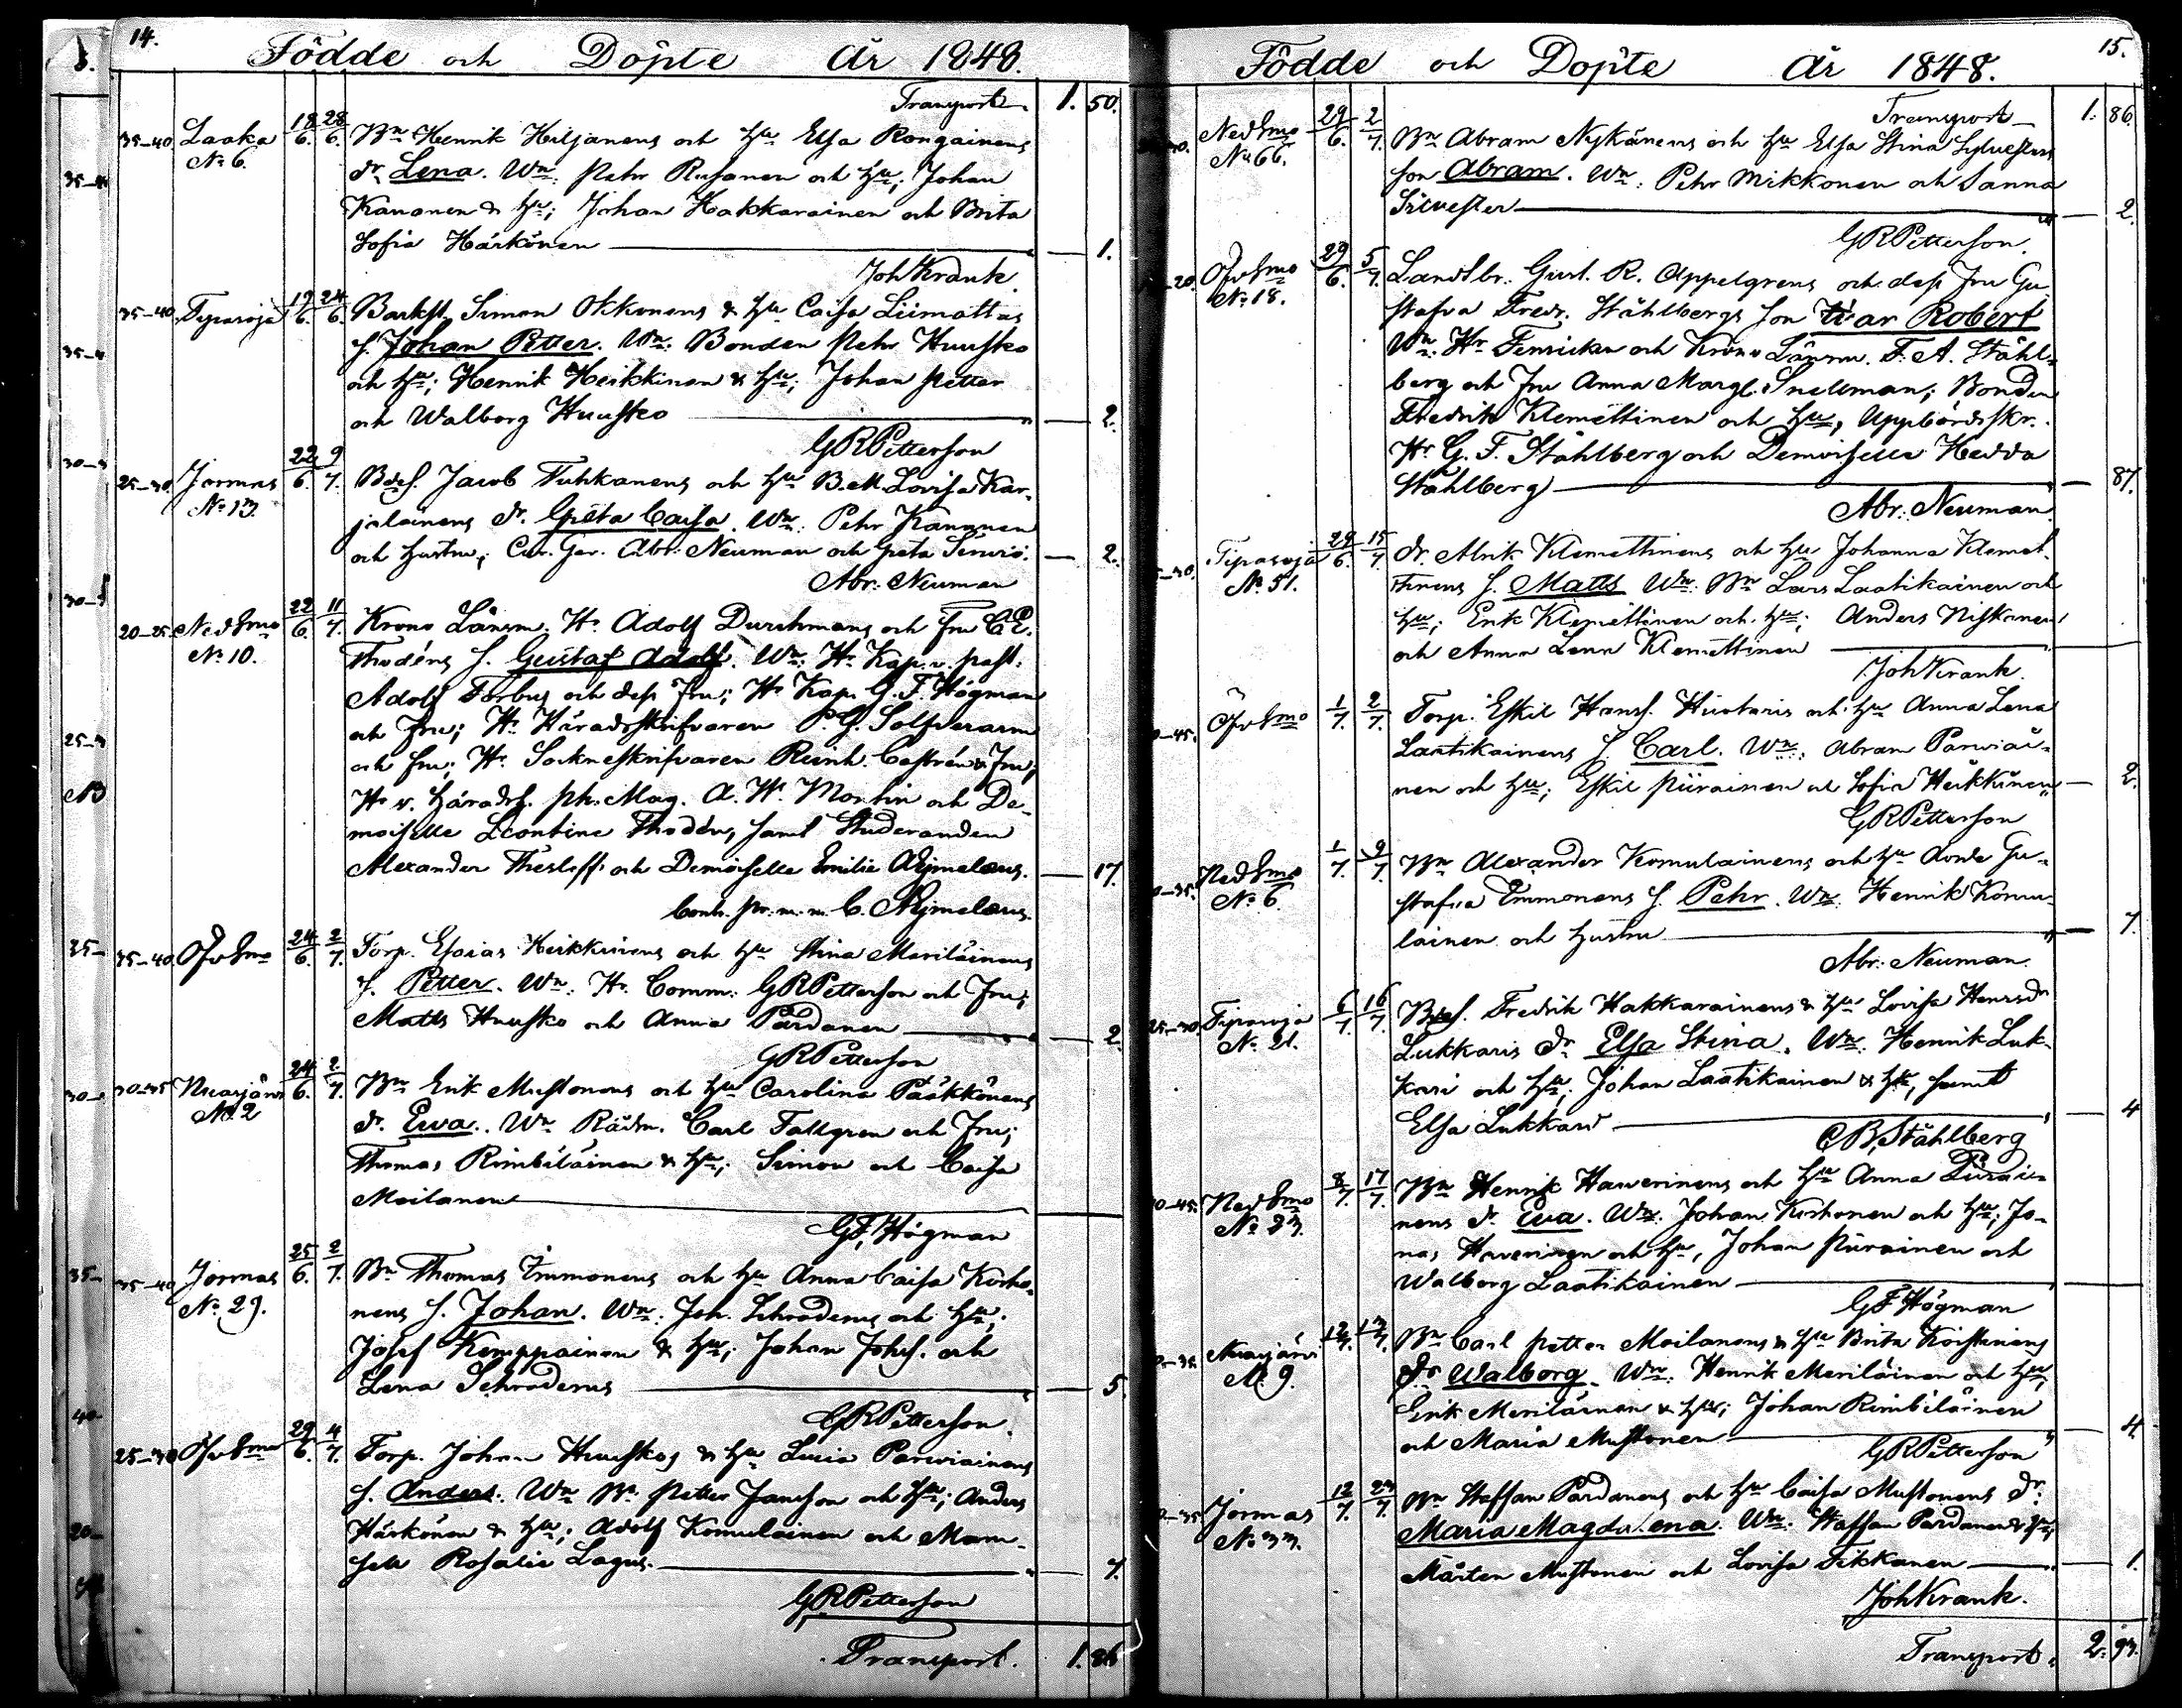 14.
Födde och Döpte År 1848.
Transport. 1. 50.
35-40 Laaka 18/6. 28/6. Bn Henrik Heiljanens och hu Elsa Rongainens
No 6. dr. Lena. Wn: Pehr Rusanen och hu; Johan
Kananen & hu; Johan Hakkarainen och Brita
Sofia Härkönen — 1.
Joh Krank.
35-40 Tipasoja 19/6. 24/6. Backst. Simon Okkonens & hu Caisa Liimattas
s. Johan Petter. Wn: Bonden Pehr Huusko
och hu; Henrik Heikkinen & hu; Johan Petter
och Walborg Huusko — 2.
GRPetterson
25-30 Jormas 22/6. 9/7. Bdes. Jacob Tuhkanens och hu B. M Lovisa Kar-
No 13. jalainens dr. Greta Caisa. Wn: Pehr Kananen
och hustru; Cur. Ger. Abr: Neuman och Greta Serviö. — 2.
Abr: Neuman
20-25 Ned Smo 22/6. 11/7. Krono Länsm. Hr Adolf Durchmans och Fru C E.
No 10. Thodéns s. Gustaf Adolf. Wn: Hr Kap. v. past:
Adolf Forbus och dess Fru; Hr Kap. G. F. Högman
och Fru; Hr Häradsskrifvaren P. G. Solfverarm
och Fru; Hr Sockneskrifvaren Reinh. Castrén & Fru;
Hr v. Häradsh. ph. Mag. A. W. Montin och De-
moiselle Leontine Thodén, samt Studeranden
Alexander Thesleff och Demoiselle Emilie Ajmelæus. — 17.
Conh. pr. m. m. C. Ajmelæus.
35-40 Öfv Smo 24/6. 2/7. Torp. Esaias Heikkinens och hu Stina Meriläinens
s. Petter. Wn: Hr. Comm: GRPetterson och Fru;
Matts Huusko och Anna Pärdanen — 2.
GRPetterson
30-35 Nuasjärvi 24/6. 2/7. Bn Erik Mustonens och hu Carolina Pääkkönens
No 2 dr. Ewa. Wn Rådm. Carl Fallgren och Fru;
Thomas Rimbiläinen & hu; Simon och Caisa
Moilanen —
GF, Högman
35-40 Jormas 25/6. 2/7. Bn Thomas Immonens och hu Anna Caisa Korho-
No. 29. nens s. Johan. Wn: Joh. Schroderus och hu;
Josef Kemppainen & hu; Johan Johss. och
Lena Schroderus — 5
GRPetterson.
25-30 Öfv Smo 29/6. 4/7. Torp. Johan Huuskos & hu Lucia Parviainens
s. Anders. Wn Bn Petter Jansson och hu; Anders
Härkönen & hu; Adolf Komulainen och Mam-
sell Rosalie Lagus. — 7.
GRPetterson
Transport. 1. 86
15.
Födde och Döpte År 1848.
Transport — 1. 86.
Ned Smo 29/6. 2/7. Bn Abram Nykänens och hu Elsa Stina Sylvesters
No 66. son Abram. Wn: Pehr Mikkonen och Sanna
Silvester — 2.
GRPetterson.
Öfv Smo 29/6. 5/7. Landtbr. Gust. R. Appelgrens och dess Fru Gu-
No 18. stafva Fredr. Ståhlbergs son Ivar Robert
Wn: Hr Fenricken och Krono Länsm. F. A. Ståhl-
berg och Fru Anna Margt. Snellman; Bonden
Fredrik Klemettinen och hu; Uppbördsskr.
Hr G. F. Ståhlberg och Demoiselle Hedda
Ståhlberg — 87.
Abr: Neuman.
Tipasoja 29/6. 15/7. dr. Alrik Klemettinens och hu Johanna Klemet-
No 51. tinens s. Matts Wn: Bn Lars Laatikainen och
hu; Erik Klemettinen och hu; Anders Niskanen
och Anna Lena Klemettinen —
Joh Krank.
Öfv Smo 1/7. 2/7. Torp. Eskil Hanss. Huotaris och hu Anna Lena
Laatikainens s. Carl. Wn: Abram Parviai-
nen och hu; Eskil Piirainen och Sofia Heikkinen — 2.
GRPetterson
Ned Smo 1/7. 9/7. Bn Alexander Komulainens och hu Gu-
No 6. stafva Immonens s. Pehr. Wn: Henrik Komu-
lainen och hustru — 7.
Abr: Neuman.
25-30 Tipasoja 6/7. 16/7. Bdes. Fredrik Hakkarainens & hu Lovisa Henrsdr
No 21. Lukkaris dr Elsa Stina. Wn: Henrik Luk-
kari och hu; Johan Laatikainen & hu, samt
Elsa Lukkari — 4
C B, Ståhlberg
Ned Smo 8/7. 17/7. Bn Henrik Hawerinens och hu Anna Piirai-
No 23. nens dr. Ewa. Wn: Johan Korhonen och hu; Jo-
nas Haverinen och hu, Johan Piirainen och
Walborg Laatikainen —
GF Högman
Nuasjärvi 12/7. Bn Carl Petter Moilanens & hu Brita Koistinens
No 9. dr Walborg. Wn: Henrik Meriläinen och hu;
Erik Meriläinen & hu; Johan Rimbiläinen
och Maria Mustonen — 4
GRPetterson
Jormas 12/7. 23/7. Bn Staffan Pardanens och hu Caisa Mustonens dr.
No 33. Maria Magdalena. Wn: Staffan Pardanen & hu;
Mårten Mustonen och Lovisa Tikkanen — 1.
Joh Krank.
Transport. 2. 93.